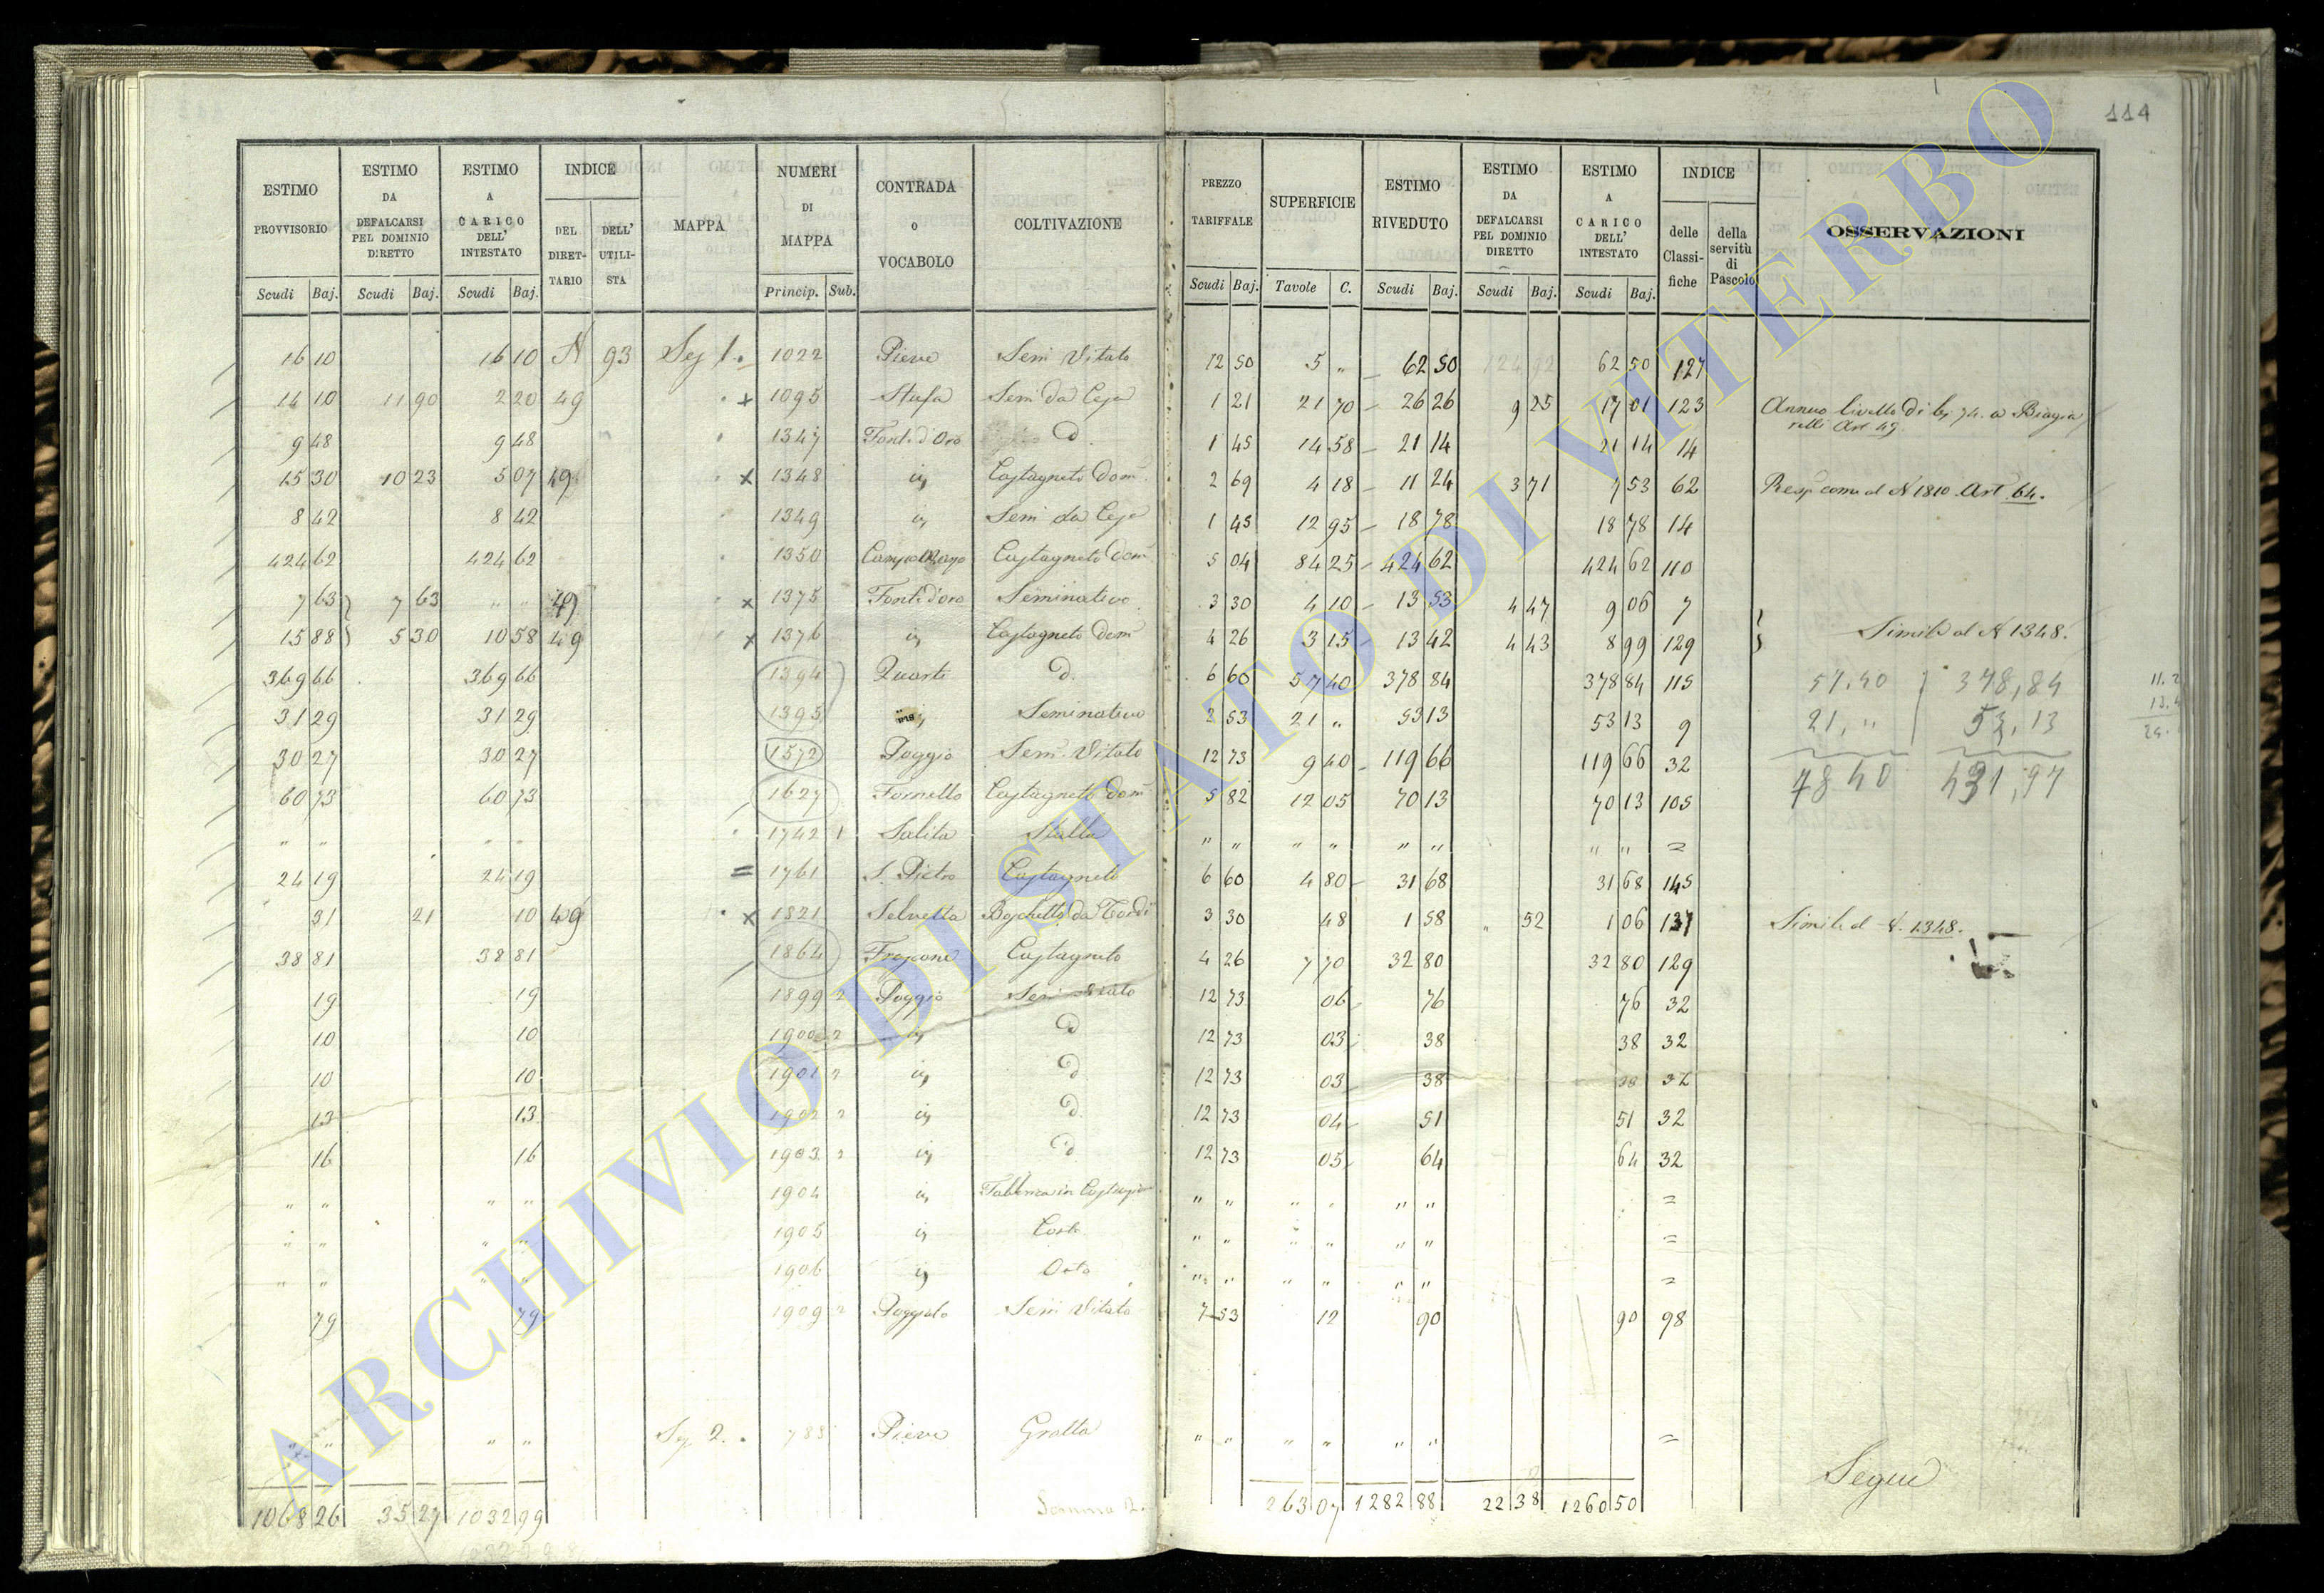 114
ESTIMO PROVVISORIO ESTIMO DA DEFALCARSI PEL DOMINIO DIRETTO ESTIMO A CARICO DELL' INTESTATO INDICE DEL DIRETTARIO DELL' UTILISTA MAPPA NUMERI DI MAPPA CONTRADA O VOCABOLO COLTIVAZIONE PREZZO TARIFFALE SUPERFICIE ESTIMO RIVEDUTO ESTIMO DA DEFALCARSI PEL DOMINIO DIRETTO ESTIMO A CARICO DELL' INTESTATO INDICE delle Classifiche della servitù di Pascolo OSSERVAZIONI
Scudi Baj. Scudi Baj. Scudi Baj. Princip. Sub. Scudi Baj. Tavole C. Scudi Baj. Scudi Baj. Scudi Baj.
16 10 16 10 N 93 Seg 1. 1022 Pieve Semi Vitato 12 50 5 „ 62 50 62 50 127
14 10 11 90 2 20 49 x 1095 Stufa Semi da Ceja 1 21 21 70 26 26 9 25 17 01 123 Annuo livello di 74. a Biagia
relli Art 49
9 48 9 48 1347 Font. d'Oro d. 1 45 14 58 21 14 21 14 14
15 30 10 23 5 07 49 x 1348 iy Castagneto Dom 2 69 4 18 11 24 3 71 7 53 62 Resp come al N 1810 Art 64.
8 42 8 42 1349 iy Semi da Ceja 1 45 12 95 18 78 18 78 14
424 62 424 62 1350 Castagneto Dom 5 04 84 25 424 62 424 62 110
7 63 7 63 „ „ 49 x 1375 Font. d'oro Seminativo 3 30 4 10 13 53 4 47 9 06 7
15 88 5 30 10 58 49 x 1376 iy Castagneto Dom 4 26 3 15 13 42 4 43 8 99 129 Simile al N 1348.
369 66 369 66 1394 Quarti d. 6 60 57 40 378 84 378 84 115 57.40 378,84
31 29 31 29 1395 iy Seminativo 2 53 21 „ 53 13 53 13 9 21, „ 53,13
30 27 30 27 1572 Poggio Sem. Vitato 12 73 9 40 119 66 119 66 32
60 73 60 73 1627 Fornello Castagneto Dom 5 82 12 05 70 13 70 13 105 78.40 431,97
„ „ „ „ 1742 1 Salita Stalla „ „ „ „ „ „ „ „ =
24 19 24 19 = 1761 S. Pietro Castagneto 6 60 4 80 31 68 31 68 145
31 21 10 49 x 1821 Selvetta Boschetto da Tordi 3 30 48 1 58 „ 52 1 06 137 Simile al N. 1348.
38 81 38 81 1864 Castagneto 4 26 7 70 32 80 32 80 129
19 19 1899 2 Poggio Semi Vitato 12 73 06 76 76 32
10 10 1900 2 iy d 12 73 03 38 38 32
10 10 1901 2 iy d 12 73 03 38 38 32
13 13 1902 2 iy d. 12 73 04 51 51 32
16 16 1903 2 iy d 12 73 05 64 64 32
„ „ „ „ 1904 iy Fabbrica in „ „ „ „ „ „ =
„ „ „ „ 1905 iy Corte „ „ „ „ „ „ =
„ „ „ „ 1906 iy Orto „ „ „ „ „ „ =
79 79 1909 2 Poggiolo Semi Vitato 7 53 12 90 90 98
„ „ „ „ Seg 2. 788 Pieve Grotta „ „ „ „ „ „ =
Segue
1068 26 35 27 1032 99 Somma 2. 263 07 1282 88 22 38 1260 50
ARCHIVIO DI STATO DI VITERBO